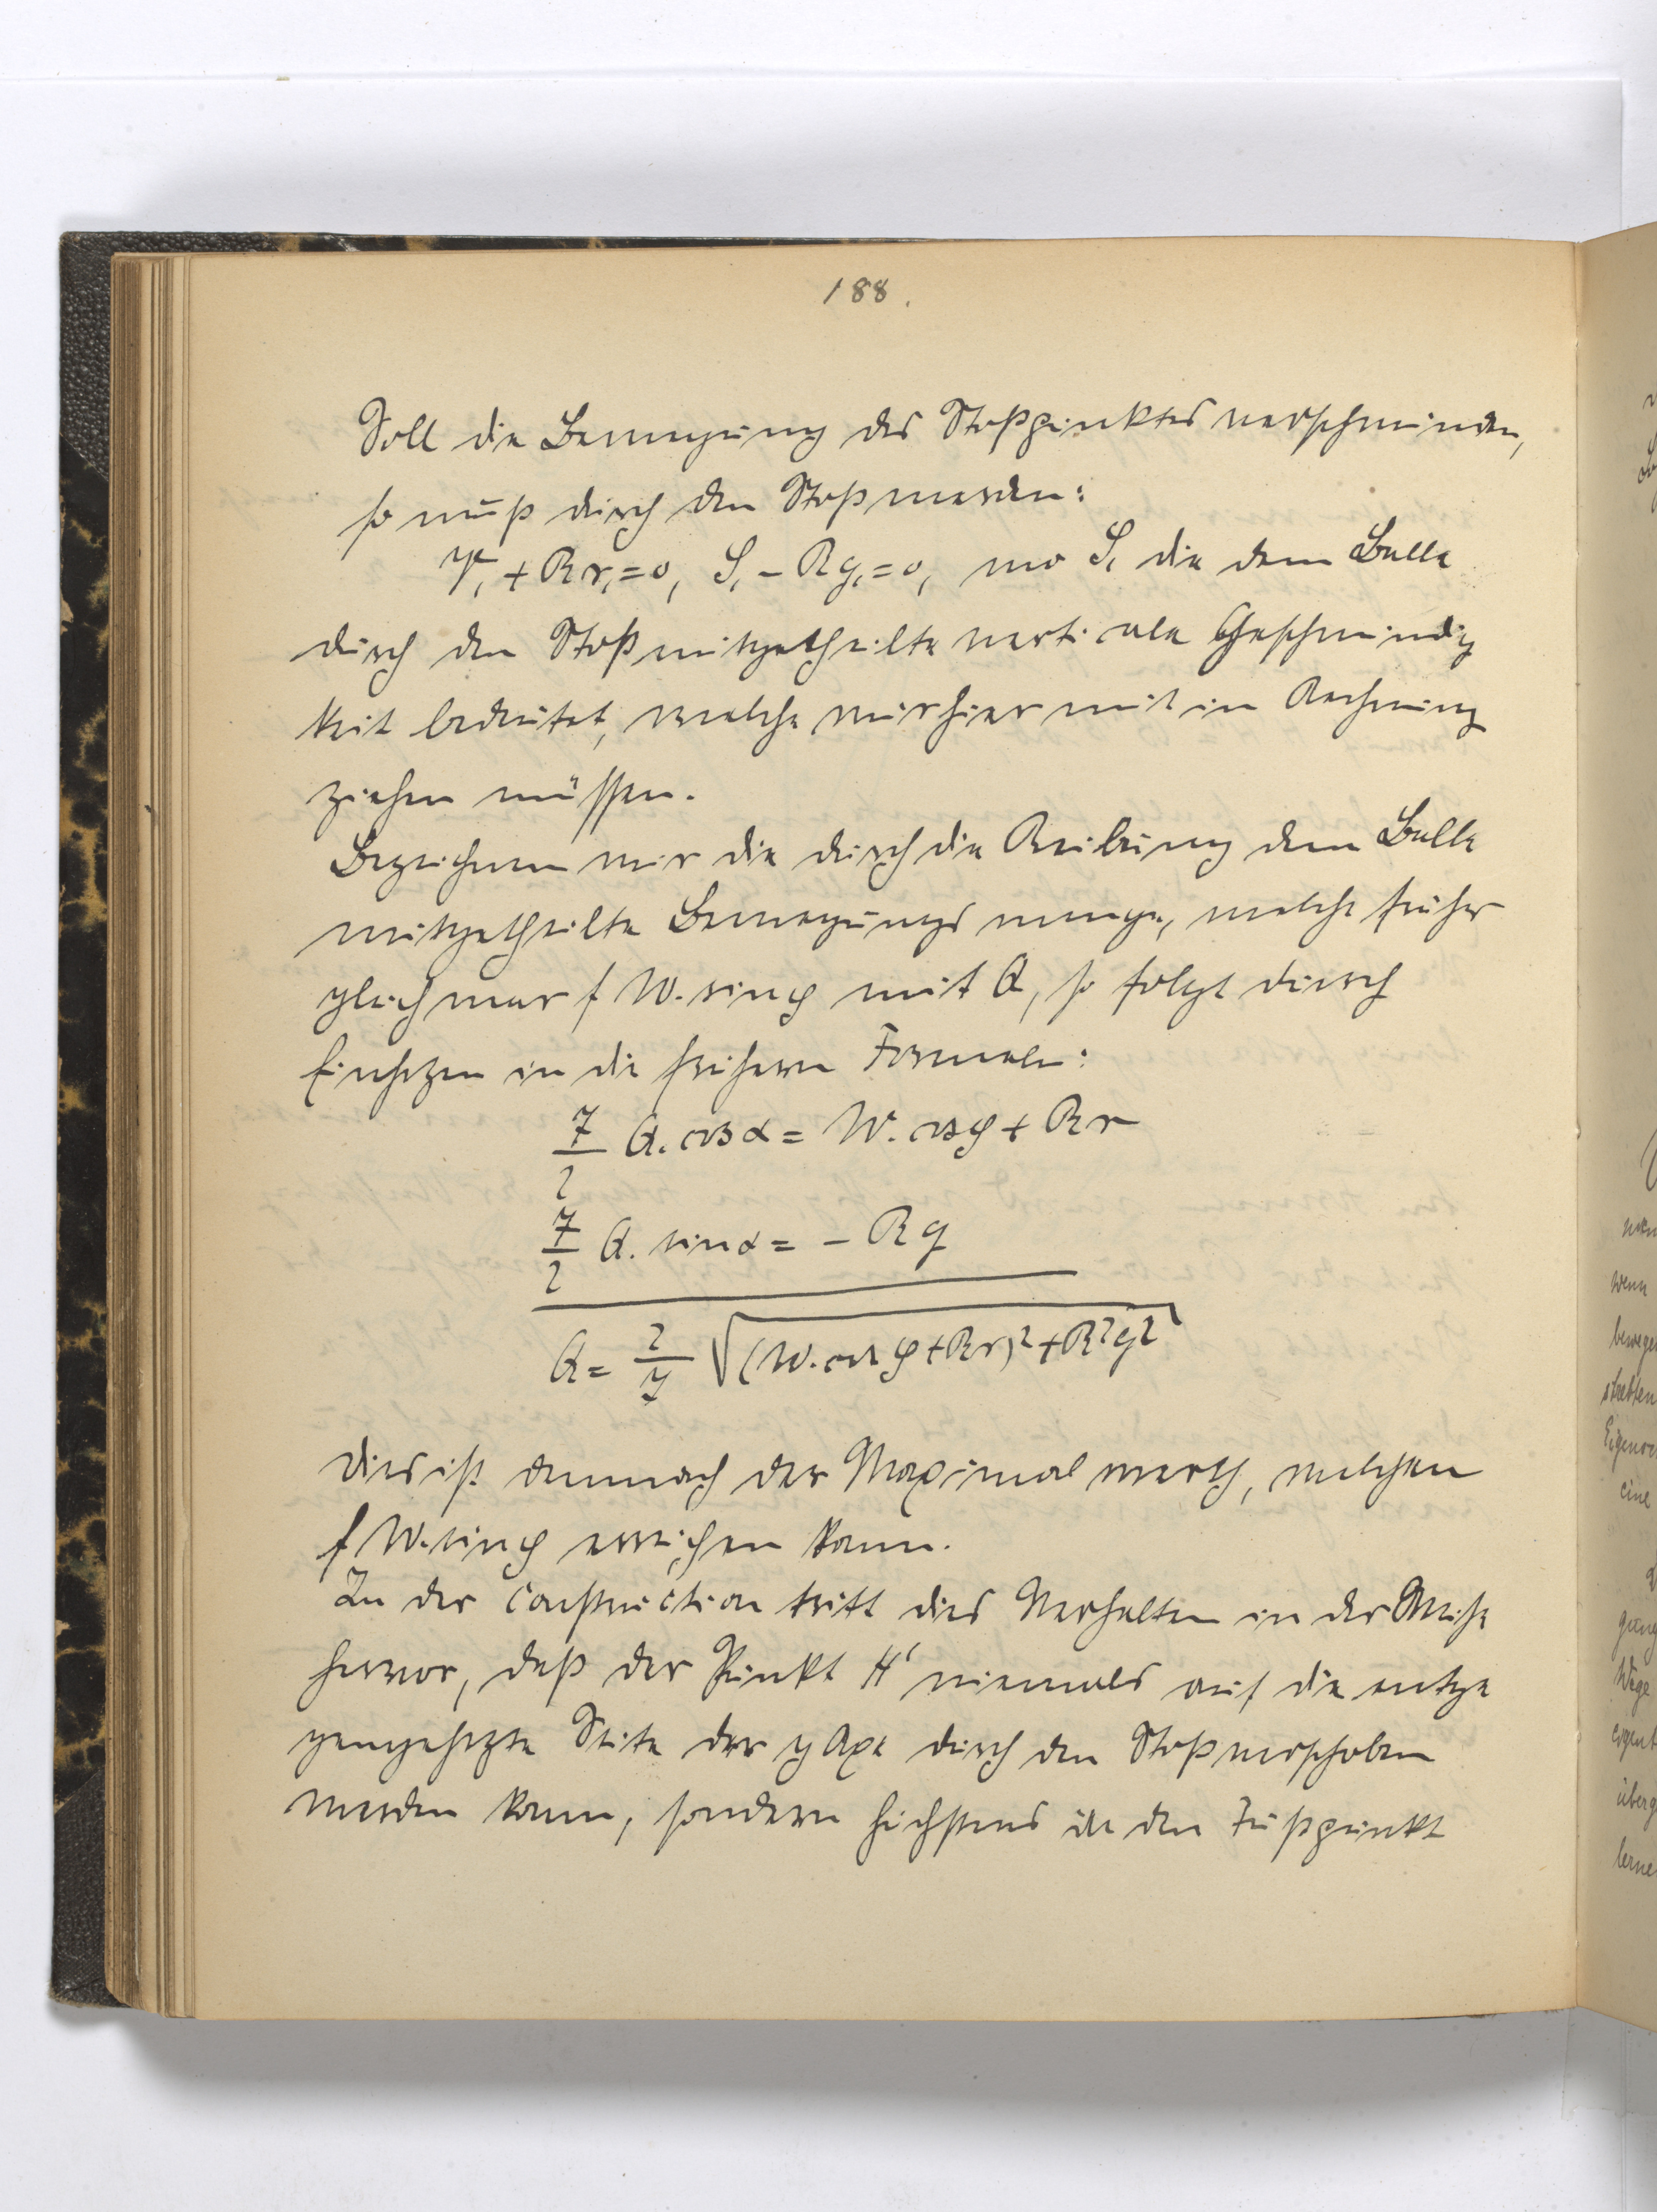 188.
Soll die Bewegung des Stoßpunktes verschwinden,
so muß durch den Stoß werden:
V₁ + Rr₁ = 0, S₁ - Rq₁ = 0, wo S₁ die dem Balle
durch den Stoß mitgetheilte verticale Geschwindig
keit bedeutet, welche wir hier mit in Rechnung
ziehen müssen.
Bezeichnen wir die durch die Reibung dem Balle
mitgetheilte Bewegungsmenge, welche früher
gleich war f W. sin φ mit Q, so folgt durch
Einsetzen in die frühern Formeln:
7/2 Q. cos α = W. cos φ + Rr
7/2 Q. sin α = - Rq
Q = 2/7 √(W. cos φ + Rr)² + R²q²
Dies ist demnach der Maximalwerth, welchen
f W. sin φ erreichen kann.
In der Construction tritt dies Verhalten in der Weise
hervor, daß der Punkt H' niemals auf die entge
gengesetzte Seite der y Axe durch den Stoß verschoben
werden kann, sondern höchstens in den Fußpunkt
wenn
bewegen
cine